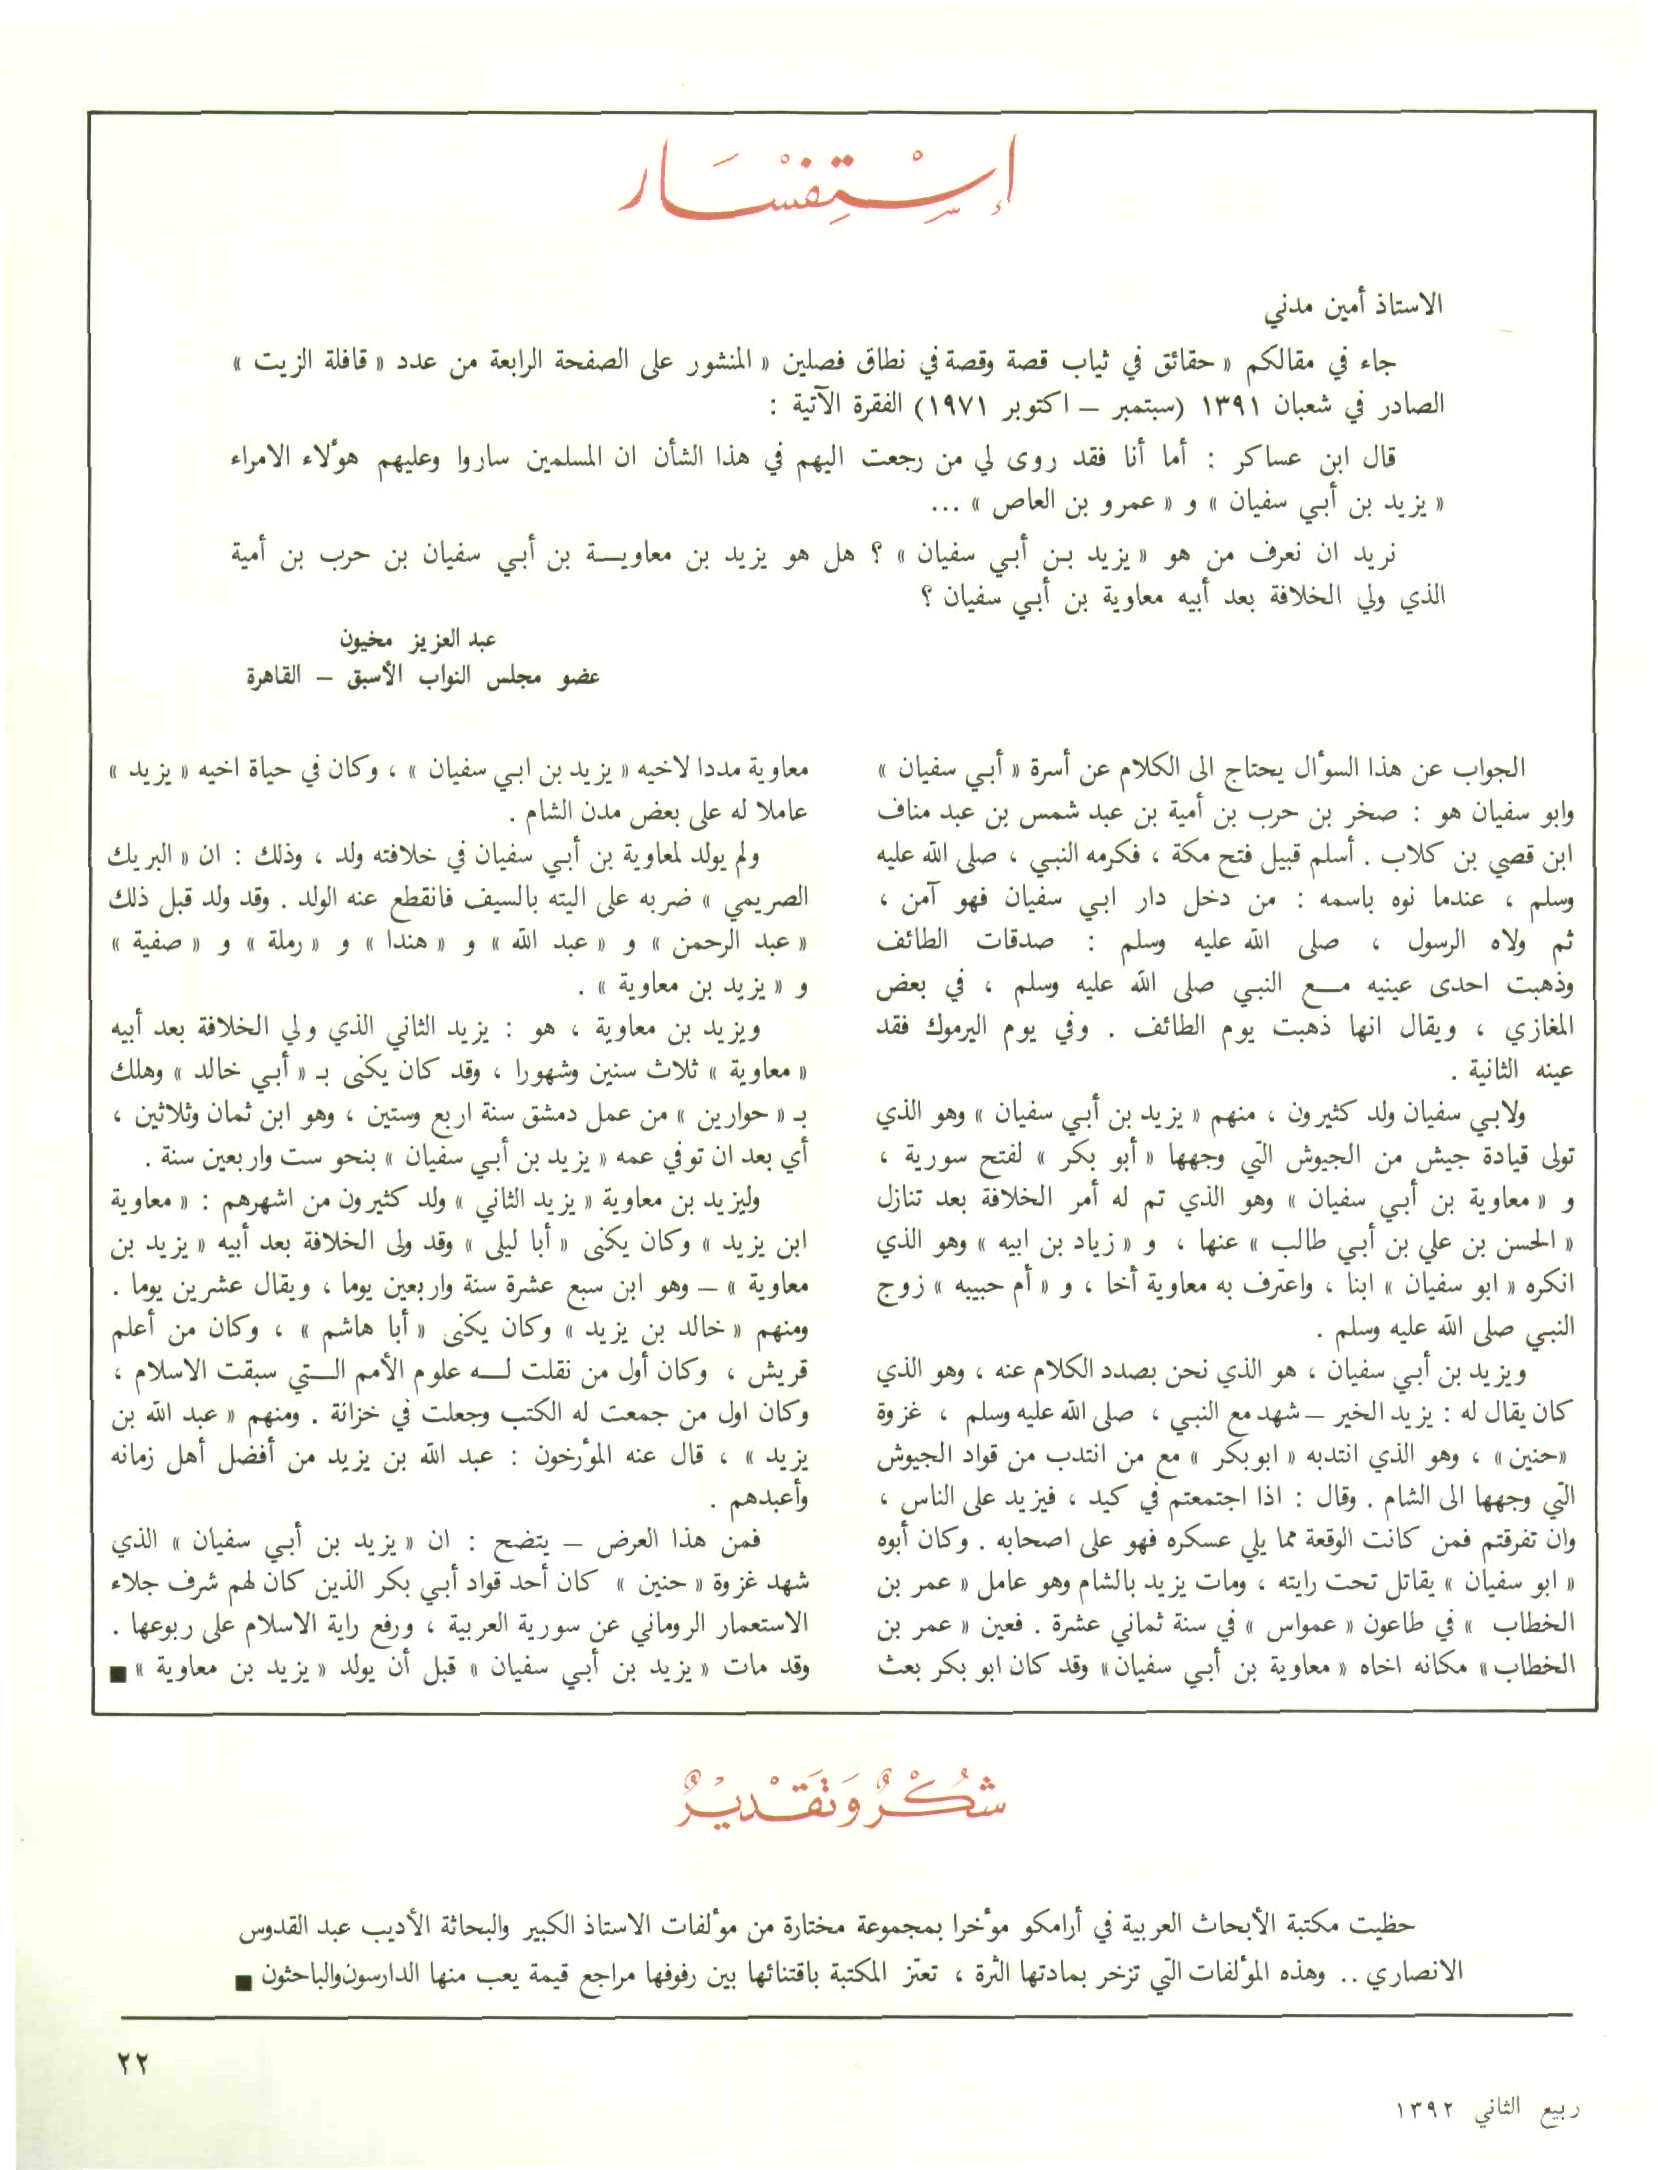 إِسْتِفْسَار
الاستاذ أمين مدني
جاء في مقالكم « حقائق في ثياب قصة وقصة في نطاق فصلين » المنشور على الصفحة الرابعة من عدد « قافلة الزيت »
الصادر في شعبان ١٣٩١ (سبتمبر – اكتوبر ١٩٧١) الفقرة الآتية :
قال ابن عساكر : أما أنا فقد روى لي من رجعت اليهم في هذا الشأن ان المسلمين ساروا وعليهم هؤلاء الامراء
« يزيد بن أبي سفيان » و « عمرو بن العاص » ...
نريد ان نعرف من هو « يزيد بن أبي سفيان » ؟ هل هو يزيد بن معاويـة بن أبي سفيان بن حرب بن أمية
الذي ولي الخلافة بعد أبيه معاوية بن أبي سفيان ؟
عبد العزيز مخيون
عضو مجلس النواب الأسبق – القاهرة
الجواب عن هذا السؤال يحتاج الى الكلام عن أسرة « أبي سفيان »
وابو سفيان هو : صخر بن حرب بن أمية بن عبد شمس بن عبد مناف
ابن قصي بن كلاب . أسلم قبيل فتح مكة ، فكرمه النبي ، صلى الله عليه
وسلم ، عندما نوه باسمه : من دخل دار ابي سفيان فهو آمن ،
ثم ولاه الرسول ، صلى الله عليه وسلم : صدقات الطائف
وذهبت احدى عينيه مـع النبي صلى الله عليه وسلم ، في بعض
المغازي ، ويقال انها ذهبت يوم الطائف . وفي يوم اليرموك فقد
عينه الثانية .
ولابي سفيان ولد كثيرون ، منهم « يزيد بن أبي سفيان » وهو الذي
تولى قيادة جيش من الجيوش التي وجهها « أبو بكر » لفتح سورية ،
و « معاوية بن أبي سفيان » وهو الذي تم له أمر الخلافة بعد تنازل
« الحسن بن علي بن أبي طالب » عنها ، و « زياد بن ابيه » وهو الذي
انكره « ابو سفيان » ابنا ، واعترف به معاوية أخا ، و « أم حبيبه » زوج
النبي صلى الله عليه وسلم .
ويزيد بن أبي سفيان ، هو الذي نحن بصدد الكلام عنه ، وهو الذي
كان يقال له : يزيد الخير – شهد مع النبي ، صلى الله عليه وسلم ، غزوة
«حنين» ، وهو الذي انتدبه « ابوبكر » مع من انتدب من قواد الجيوش
التي وجهها الى الشام . وقال : اذا اجتمعتم في كيد ، فيزيد على الناس ،
وان تفرقتم فمن كانت الوقعة مما يلي عسكره فهو على اصحابه . وكان أبوه
« ابو سفيان » يقاتل تحت رايته ، ومات يزيد بالشام وهو عامل « عمر بن
الخطاب » في طاعون « عمواس » في سنة ثماني عشرة . فعين « عمر بن
الخطاب» مكانه اخاه « معاوية بن أبي سفيان» وقد كان ابو بكر بعث
معاوية مددا لاخيه « يزيد بن ابي سفيان » ، وكان في حياة اخيه « يزيد »
عاملا له على بعض مدن الشام .
ولم يولد لمعاوية بن أبي سفيان في خلافته ولد ، وذلك : ان « البريك
الصريمي » ضربه على اليته بالسيف فانقطع عنه الولد . وقد ولد قبل ذلك
« عبد الرحمن » و « عبد الله » و « هندا » و « رملة » و « صفية »
و « يزيد بن معاوية » .
ويزيد بن معاوية ، هو : يزيد الثاني الذي ولي الخلافة بعد أبيه
« معاوية » ثلاث سنين وشهورا ، وقد كان يكنى بـ « أبي خالد » وهلك
بـ « حوارين » من عمل دمشق سنة اربع وستين ، وهو ابن ثمان وثلاثين ،
أي بعد ان توفي عمه « يزيد بن أبي سفيان » بنحو ست واربعين سنة .
وليزيد بن معاوية « يزيد الثاني » ولد كثيرون من اشهرهم : « معاوية
ابن يزيد » وكان يكنى « أبا ليلى » وقد ولى الخلافة بعد أبيه « يزيد بن
معاوية » – وهو ابن سبع عشرة سنة واربعين يوما ، ويقال عشرين يوما .
ومنهم « خالد بن يزيد » وكان يكنى « أبا هاشم » ، وكان من أعلم
قريش ، وكان أول من نقلت لـه علوم الأمم الـتي سبقت الاسلام ،
وكان اول من جمعت له الكتب وجعلت في خزانة . ومنهم « عبد الله بن
يزيد » ، قال عنه المؤرخون : عبد الله بن يزيد من أفضل أهل زمانه
وأعبدهم .
فمن هذا العرض – يتضح : ان « يزيد بن أبي سفيان » الذي
شهد غزوة « حنين » كان أحد قواد أبي بكر الذين كان لهم شرف جلاء
الاستعمار الروماني عن سورية العربية ، ورفع راية الاسلام على ربوعها .
وقد مات « يزيد بن أبي سفيان » قبل أن يولد « يزيد بن معاوية » ■
شُكْرٌ وَتَقْدِيرٌ
حظيت مكتبة الأبحاث العربية في أرامكو مؤخرا بمجموعة مختارة من مؤلفات الاستاذ الكبير والبحاثة الأديب عبد القدوس
الانصاري .. وهذه المؤلفات التي تزخر بمادتها الثرة ، تعتز المكتبة باقتنائها بين رفوفها مراجع قيمة يعب منها الدارسون والباحثون ■
٢٢
ربيع الثاني ١٣٩٢